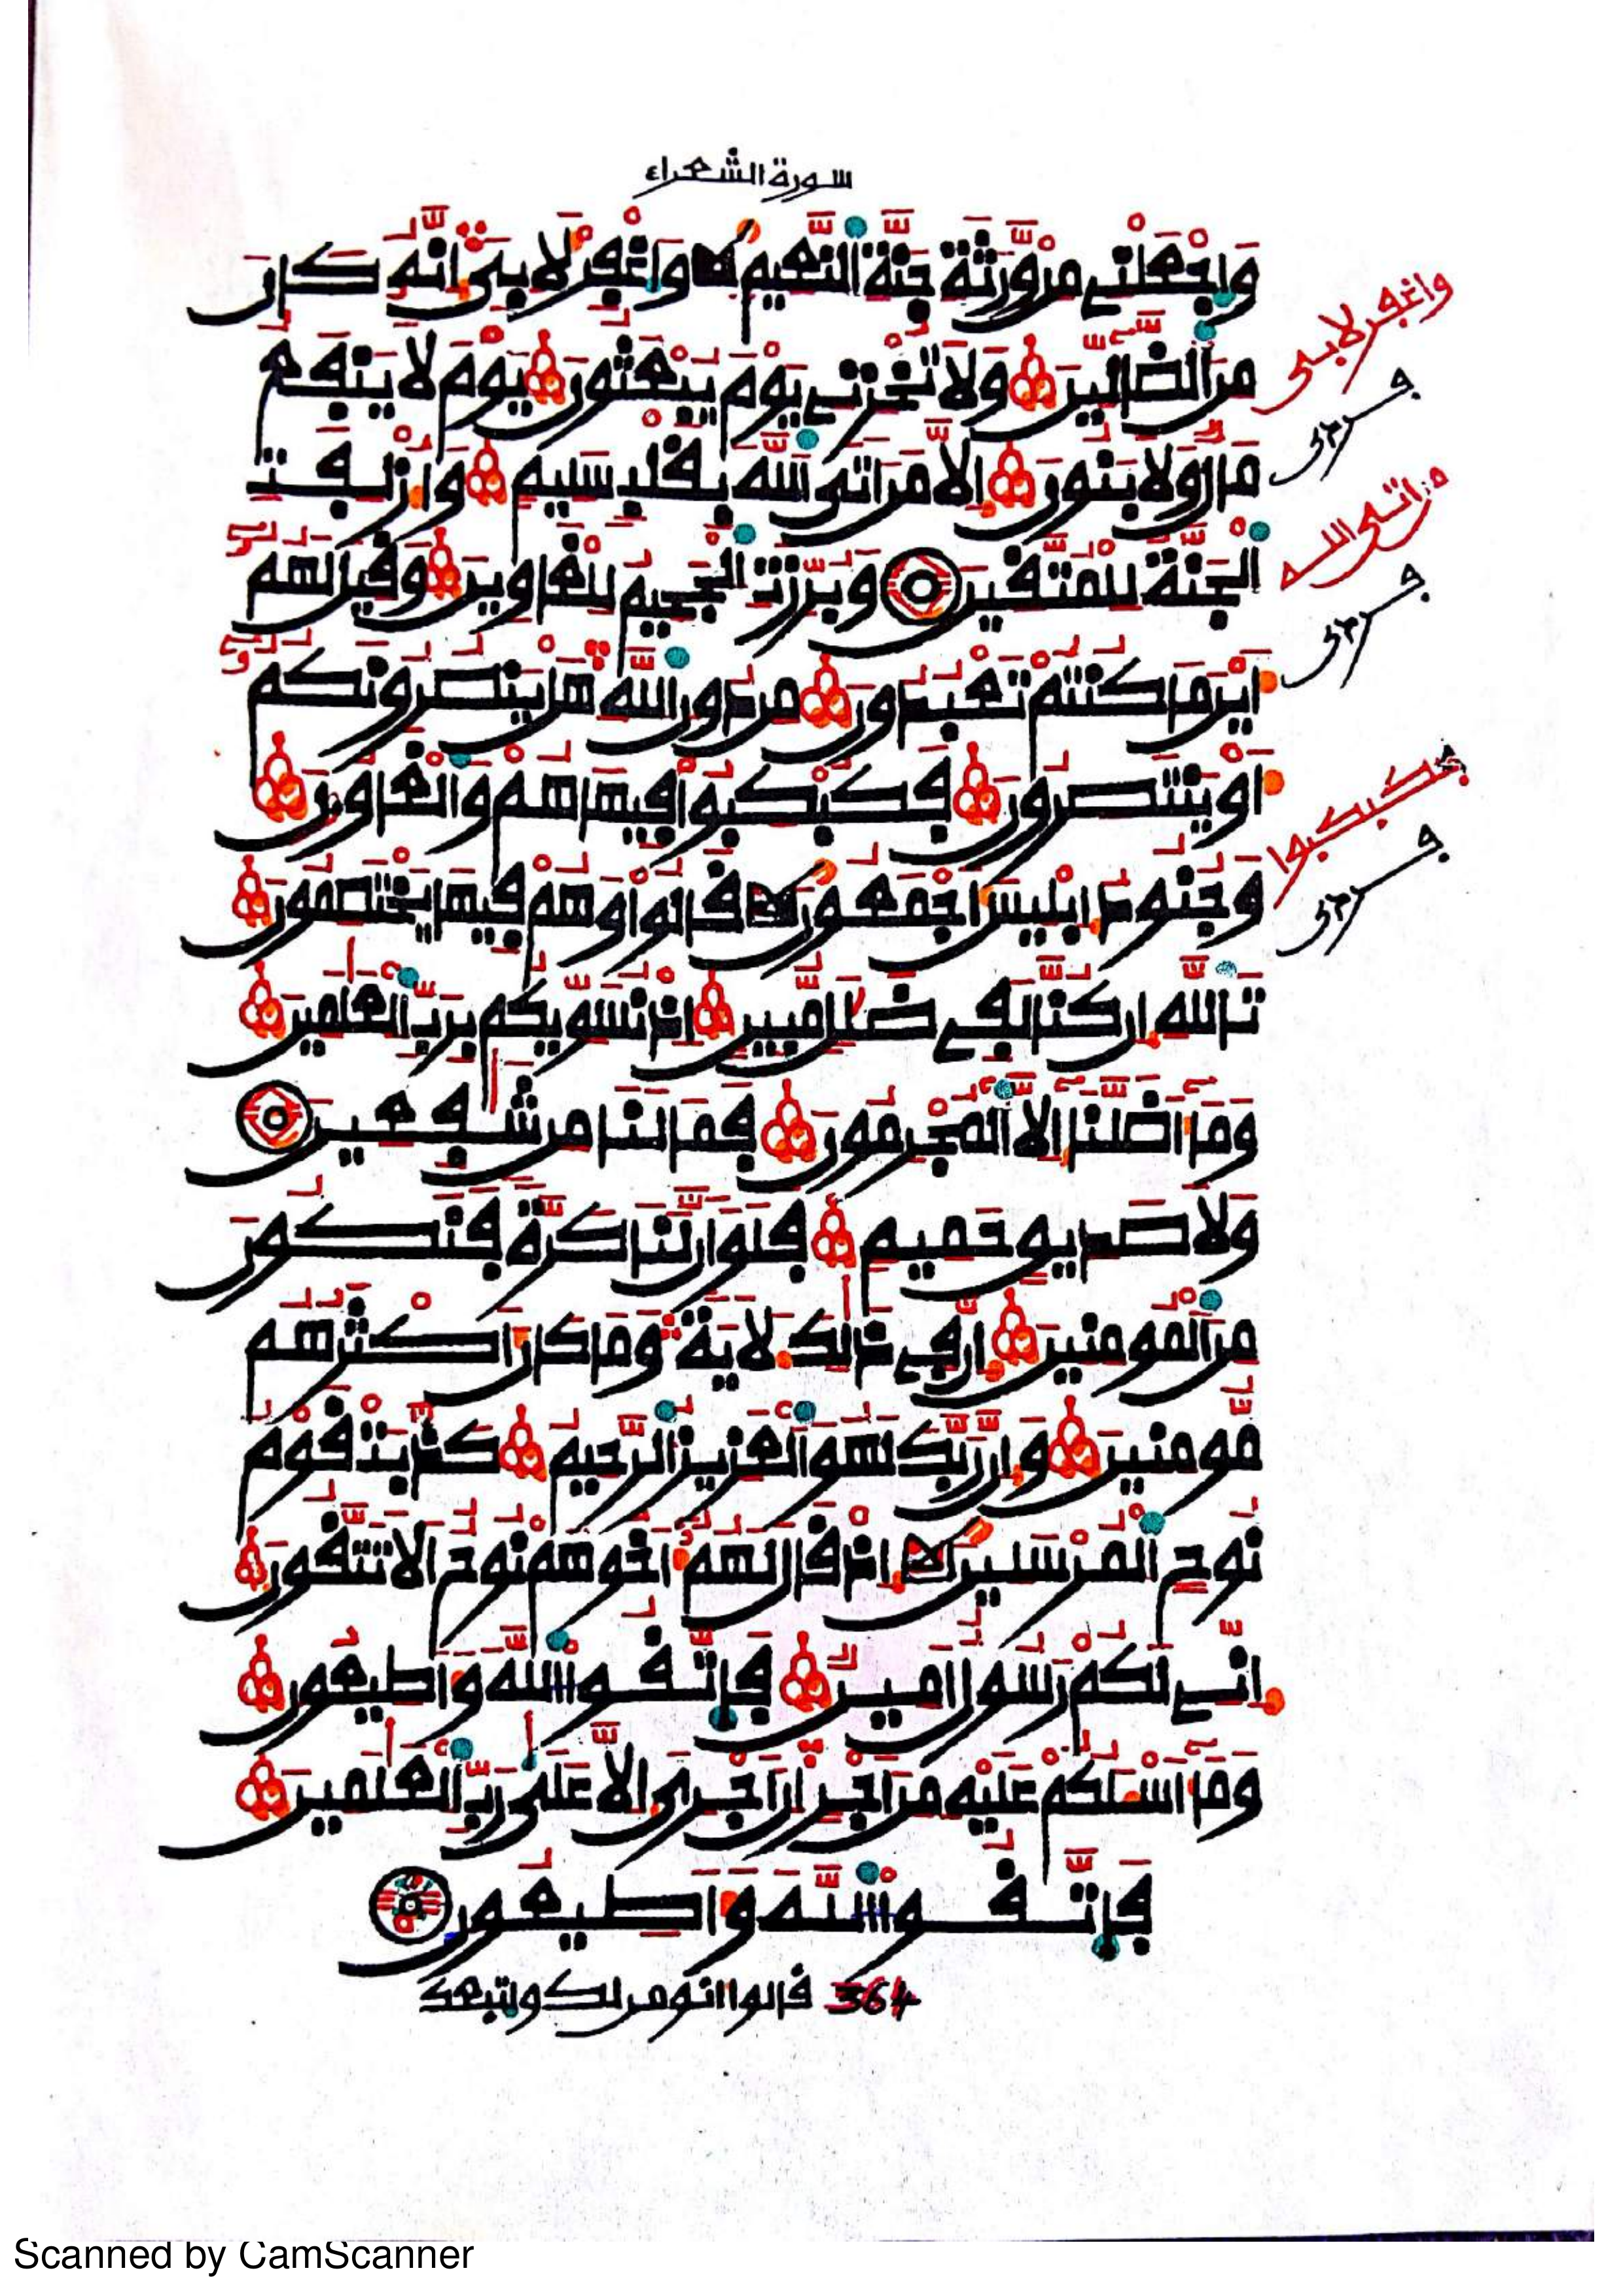 سورة الشعراء
وَاجْعَلْنِے مِنْ وَّرَثَةِ جَنَّةِ اِ۬لنَّعِيمِ وَاغْفِرْ لِأَبِىَ إِنَّهُۥ كَانَ
واغفر لأبى
مِنَ اَ۬لضَّآلِّينَ وَلَا تُخْزِنِے يَوْمَ يُبْعَثُونَ يَوْمَ لَا يَنفَعُ
مَالٌ وَلَا بَنُونَ إِلَّا مَنَ اَتَى اَ۬للَّهَ بِقَلْبٍ سَلِيمٍ وَأُزْلِفَتِ
من اتى الله
اِ۬لْجَنَّةُ لِلْمُتَّقِينَ وَبُرِّزَتِ اِ۬لْجَحِيمُ لِلْغَاوِينَ وَقِيلَ لَهُمُۥٓ
أَيْنَ مَا كُنتُمْ تَعْبُدُونَ مِن دُونِ اِ۬للَّهِ هَلْ يَنصُرُونَكُمُۥٓ
أَوْ يَنتَصِرُونَ فَكُبْكِبُوا فِيهَا هُمْ وَالْغَاوُونَ
فكبكبوا
وَجُنُودُ إِبْلِيسَ أَجْمَعُونَ قَالُوا وَهُمْ فِيهَا يَخْتَصِمُونَ
تَاللَّهِ إِن كُنَّا لَفِے ضَلَٰلٍ مُّبِينٍ إِذْ نُسَوِّيكُم بِرَبِّ اِ۬لْعَٰلَمِينَ
وَمَآ أَضَلَّنَآ إِلَّا اَ۬لْمُجْرِمُونَ فَمَا لَنَا مِن شَٰفِعِينَ
وَلَا صَدِيقٍ حَمِيمٍ فَلَوَ اَنَّ لَنَا كَرَّةً فَنَكُونَ
مِنَ اَ۬لْمُومِنِينَ إِنَّ فِے ذَٰلِكَ لَأٓيَةً وَمَا كَانَ أَكْثَرُهُم
مُّومِنِينَ وَإِنَّ رَبَّكَ لَهُوَ اَ۬لْعَزِيزُ اُ۬لرَّحِيمُ كَذَّبَتْ قَوْمُ
نُوحٍ اِ۬لْمُرْسَلِينَ إِذْ قَالَ لَهُمُۥٓ أَخُوهُمْ نُوحٌ اَلَا تَتَّقُونَ
إِنِّے لَكُمْ رَسُولٌ اَمِينٌ فَاتَّقُوا اُ۬للَّهَ وَأَطِيعُونِ
وَمَآ أَسْـَٔلُكُمْ عَلَيْهِ مِنَ اَجْرٍ اِنَ اَجْرِىَ إِلَّا عَلَىٰ رَبِّ اِ۬لْعَٰلَمِينَ
فَاتَّقُوا اُ۬للَّهَ وَأَطِيعُونِ
364 قالوا انومن لك واتبعك
Scanned by CamScanner